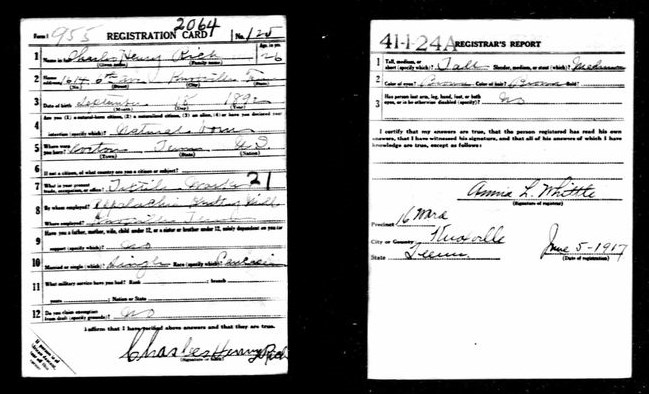 Form 1 955 REGISTRATION CARD 2064 No. 125
1 Name in full Charles Henry Rich Age, in yrs. 26
(Given name) (Family name)
2 Home address 1614 6th ave Knoxville Tenn
(No.) (Street) (City) (State)
3 Date of birth September 18 1890
(Month) (Day) (Year)
4 Are you (1) a natural-born citizen, (2) a naturalized citizen, (3) an alien, (4) or have you declared your
intention (specify which)? Natural born
5 Where were you born? Tenn U.S.
(Town) (State) (Nation)
6 If not a citizen, of what country are you a citizen or subject?
7 What is your present trade, occupation, or office? Textile Worker 21
8 By whom employed? Mill
Where employed? Knoxville Tenn
9 Have you a father, mother, wife, child under 12, or a sister or brother under 12, solely dependent on you for
support (specify which)? No
10 Married or single (which)? Single Race (specify which)?
11 What military service have you had? Rank ; branch
years ; Nation or State
12 Do you claim exemption from draft (specify grounds)? No
I affirm that I have verified above answers and that they are true.
Charles Henry Rich
41-1-24A REGISTRAR'S REPORT
1 Tall, medium, or short (specify which)? Tall Slender, medium, or stout (which)? Medium
2 Color of eyes? Brown Color of hair? Brown Bald?
3 Has person lost arm, leg, hand, foot, or both eyes, or is he otherwise disabled (specify)? No
I certify that my answers are true, that the person registered has read his own
answers, that I have witnessed his signature, and that all of his answers of which I have
knowledge are true, except as follows:
Annie L. Whittle
(Signature of registrar)
Precinct 16 Ward
City or County Knoxville
State Tenn
June 5-1917
(Date of registration)